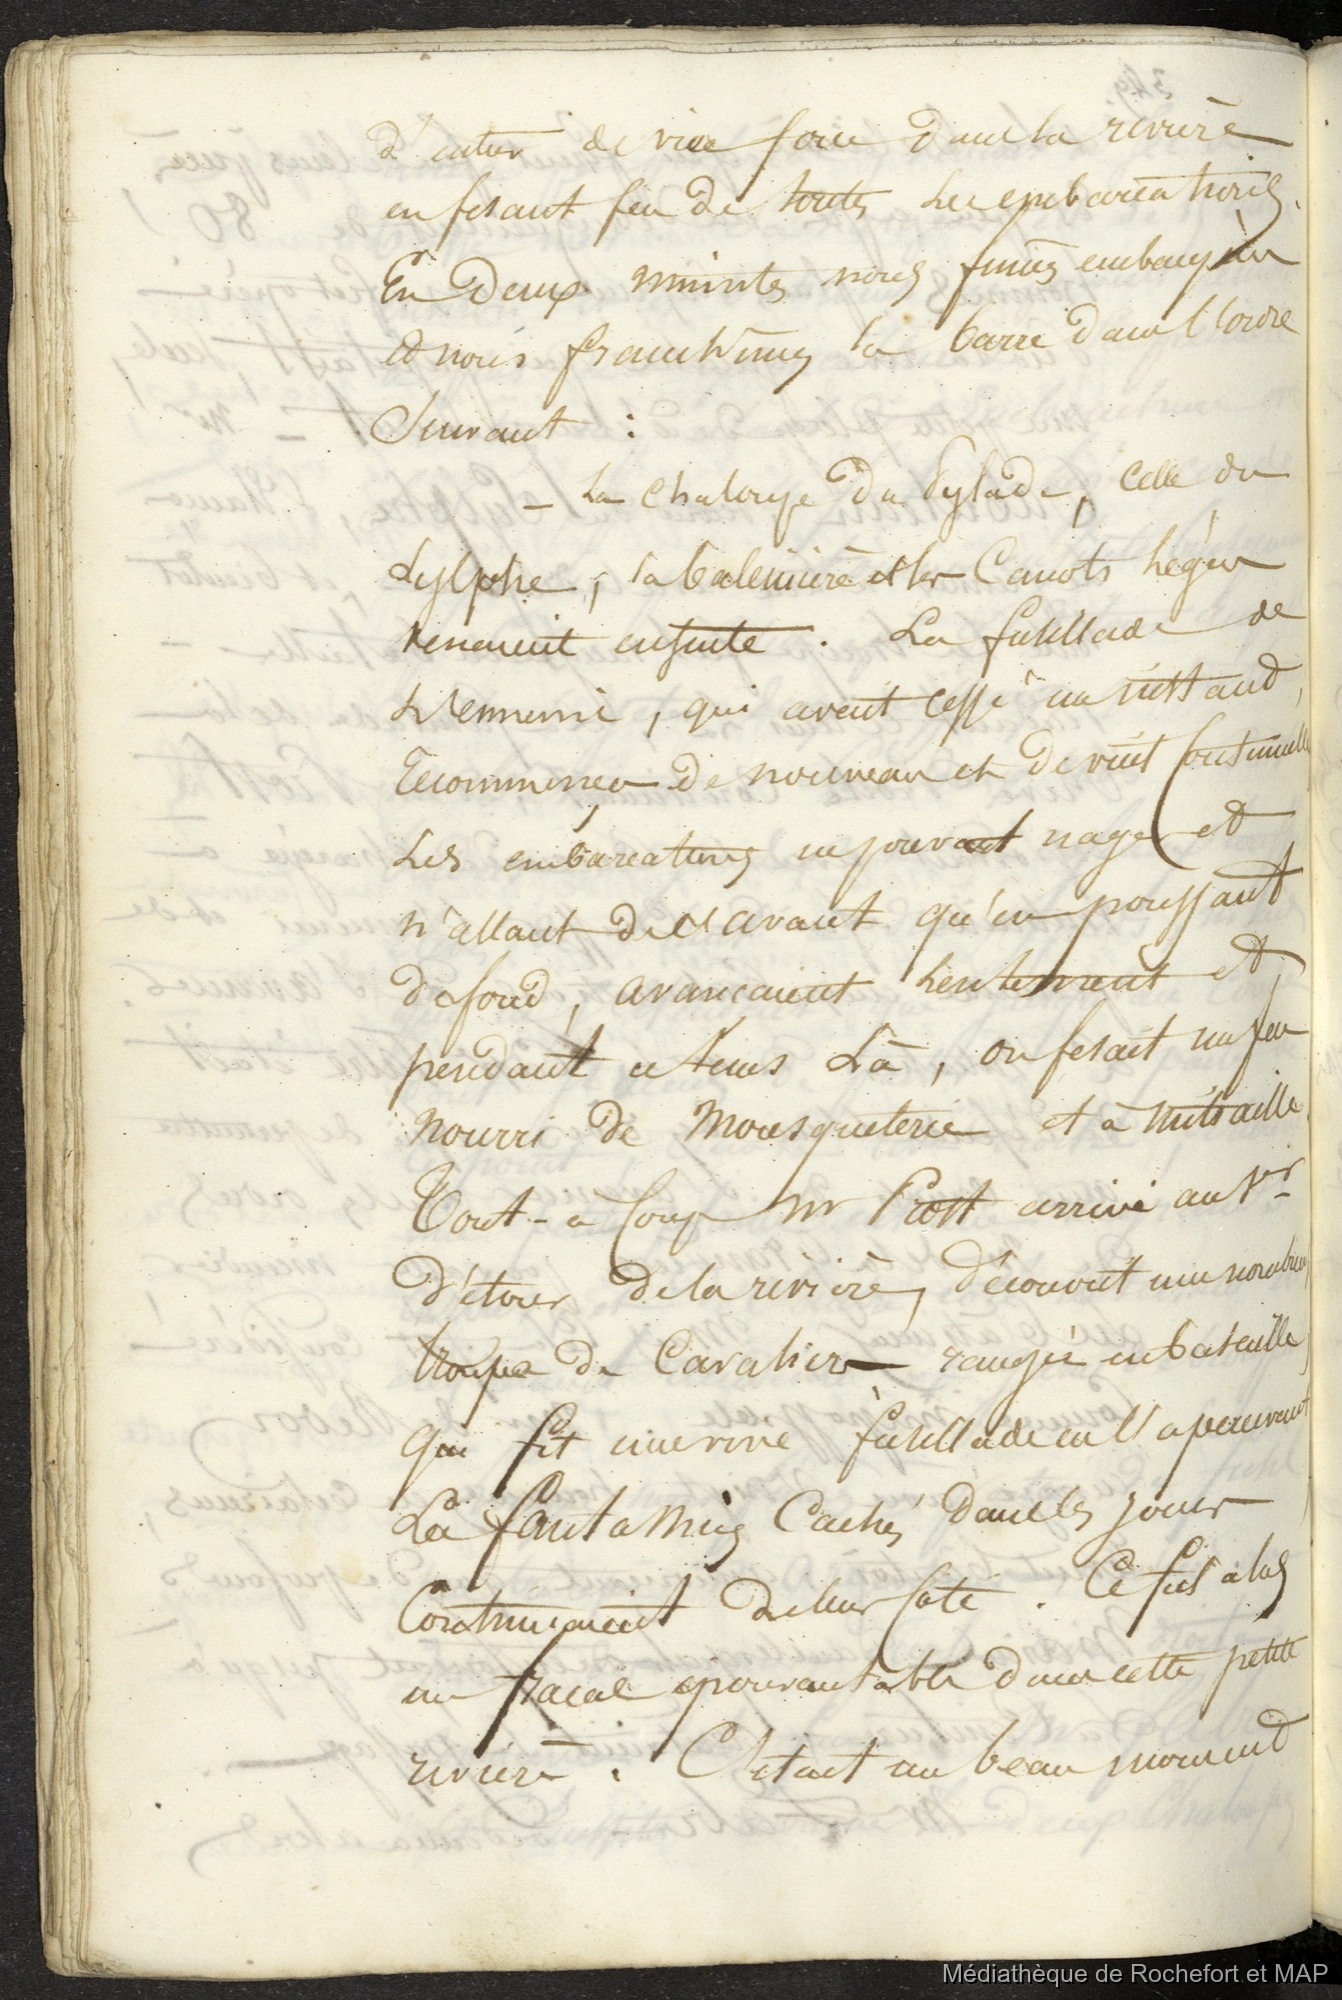 d'entrer de vive force dans la rivière
en fesant feu de toutes les embarcations.
En deux minutes nous fumes embarqués
et nous franchîmes la barre dans l'ordre
Suivant :
- La chaloupe du Pylade, celle du
Sylphe, la baleinière et les Canots légers
venaient ensuite. La fusillade de
l'ennemi, qui avait cessé un instant,
recommença de nouveau et devint continuelle
Les embarcations ne pouvant nager et
n'allant de l'avant qu'en poussant
de fond, avançaient lentement et
pendant ce tems là, on fesait un feu
nourri de mousqueterie et à mitraille.
Tout-à-coup Mr Prott arrivé au 1er
détour de la rivière, découvrit une nombreuse
troupe de Cavaliers rangée en bataille
qui fit une vive fusillade en l'apercevant
La fantassins Cachés dans les joncs
Continuaient de leur côté. Ce fut alors
un fracas épouvantable dans cette petite
rivière. C'était un beau moment
Médiathèque de Rochefort et MAP